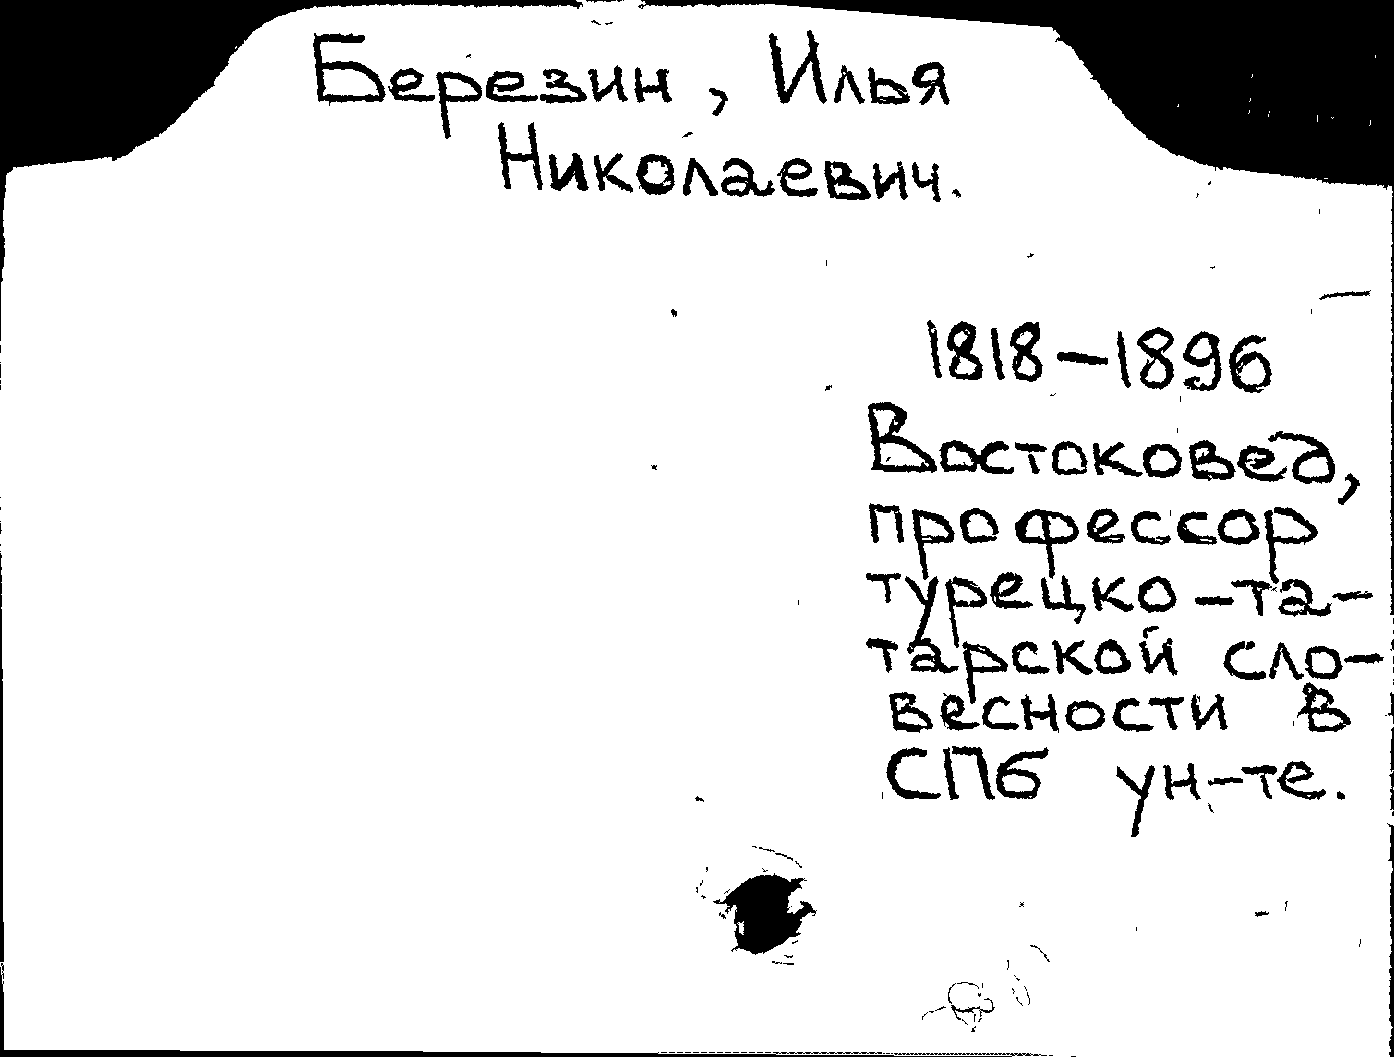 Березин, Илья
Николаевич.
1818–1896
Востоковед,
профессор
турецко-та-
тарской сло-
весности в
СПб ун-те.